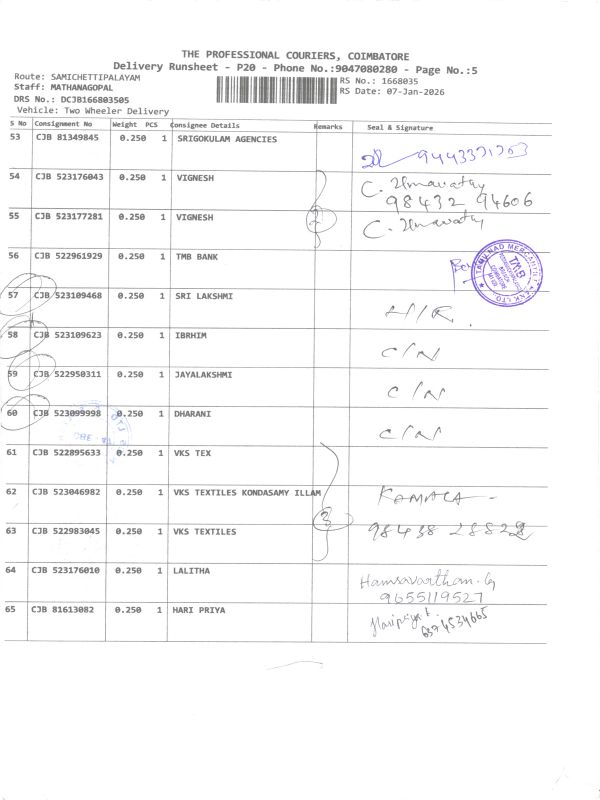 THE PROFESSIONAL COURIERS, COIMBATORE
Delivery Runsheet - P20 - Phone No.:9047080280 - Page No.:5
Route: SAMICHETTIPALAYAM
Staff: MATHANAGOPAL
DRS No.: DCJB166803505
Vehicle: Two Wheeler Delivery
RS No.: 1668035
RS Date: 07-Jan-2026
S No Consignment No Weight PCS Consignee Details Remarks Seal & Signature
53 CJB 81349845 0.250 1 SRIGOKULAM AGENCIES
54 CJB 523176043 0.250 1 VIGNESH C. Umavathy
98432 94606
55 CJB 523177281 0.250 1 VIGNESH 2 C. Umavathy
56 CJB 522961929 0.250 1 TMB BANK
TAMILNAD MERCANTILE BANK LTD.
TMB
57 CJB 523109468 0.250 1 SRI LAKSHMI
58 CJB 523109623 0.250 1 IBRHIM C/N
59 CJB 522950311 0.250 1 JAYALAKSHMI C/N
60 CJB 523099998 0.250 1 DHARANI C/N
61 CJB 522895633 0.250 1 VKS TEX
62 CJB 523046982 0.250 1 VKS TEXTILES KONDASAMY ILLAM KAMALA -
3
63 CJB 522983045 0.250 1 VKS TEXTILES 98438 28828
64 CJB 523176010 0.250 1 LALITHA Hamsavartham.G
9655119527
65 CJB 81613082 0.250 1 HARI PRIYA Haripriya
6374534665